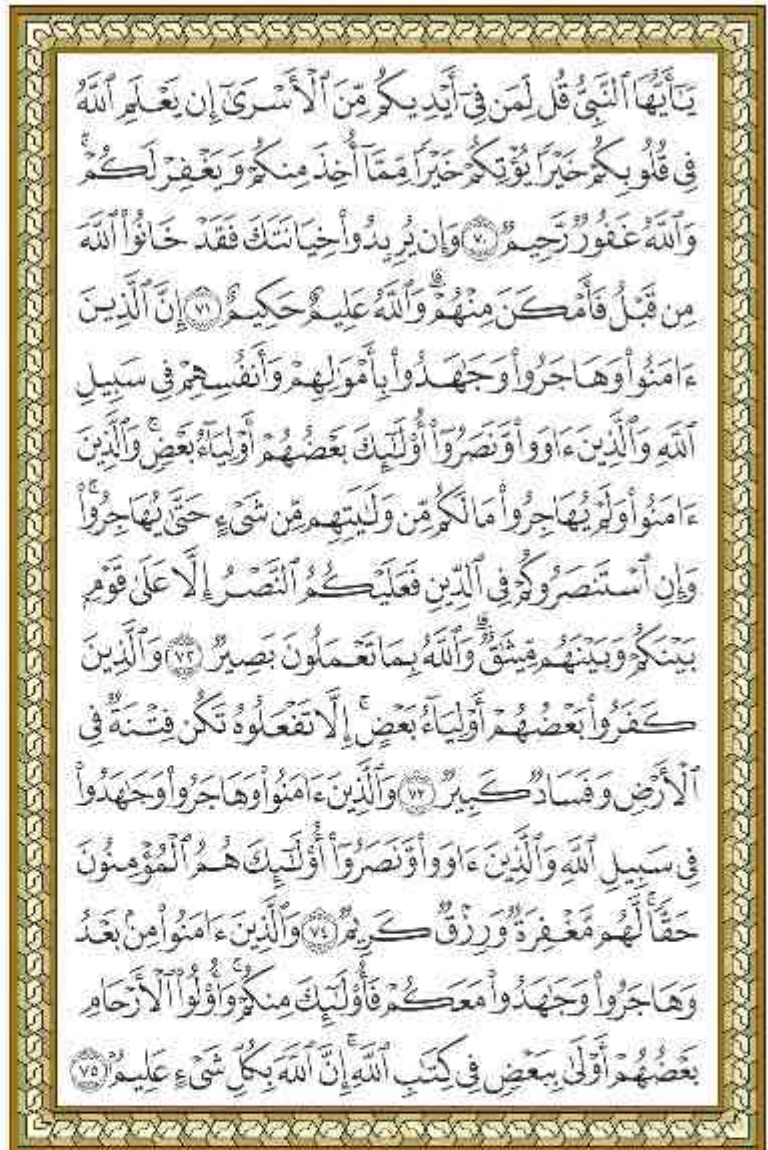 يَـٰٓأَيُّهَا ٱلنَّبِىُّ قُل لِّمَن فِىٓ أَيْدِيكُم مِّنَ ٱلْأَسْرَىٰٓ إِن يَعْلَمِ ٱللَّهُ
فِى قُلُوبِكُمْ خَيْرًا يُؤْتِكُمْ خَيْرًا مِّمَّآ أُخِذَ مِنكُمْ وَيَغْفِرْ لَكُمْ ۗ
وَٱللَّهُ غَفُورٌ رَّحِيمٌ ﴿٧٠﴾ وَإِن يُرِيدُوا۟ خِيَانَتَكَ فَقَدْ خَانُوا۟ ٱللَّهَ
مِن قَبْلُ فَأَمْكَنَ مِنْهُمْ ۗ وَٱللَّهُ عَلِيمٌ حَكِيمٌ ﴿٧١﴾ إِنَّ ٱلَّذِينَ
ءَامَنُوا۟ وَهَاجَرُوا۟ وَجَـٰهَدُوا۟ بِأَمْوَٰلِهِمْ وَأَنفُسِهِمْ فِى سَبِيلِ
ٱللَّهِ وَٱلَّذِينَ ءَاوَوا۟ وَّنَصَرُوٓا۟ أُو۟لَـٰٓئِكَ بَعْضُهُمْ أَوْلِيَآءُ بَعْضٍ ۚ وَٱلَّذِينَ
ءَامَنُوا۟ وَلَمْ يُهَاجِرُوا۟ مَا لَكُم مِّن وَلَـٰيَتِهِم مِّن شَىْءٍ حَتَّىٰ يُهَاجِرُوا۟ ۚ
وَإِنِ ٱسْتَنصَرُوكُمْ فِى ٱلدِّينِ فَعَلَيْكُمُ ٱلنَّصْرُ إِلَّا عَلَىٰ قَوْمٍۭ
بَيْنَكُمْ وَبَيْنَهُم مِّيثَـٰقٌ ۗ وَٱللَّهُ بِمَا تَعْمَلُونَ بَصِيرٌ ﴿٧٢﴾ وَٱلَّذِينَ
كَفَرُوا۟ بَعْضُهُمْ أَوْلِيَآءُ بَعْضٍ ۚ إِلَّا تَفْعَلُوهُ تَكُن فِتْنَةٌ فِى
ٱلْأَرْضِ وَفَسَادٌ كَبِيرٌ ﴿٧٣﴾ وَٱلَّذِينَ ءَامَنُوا۟ وَهَاجَرُوا۟ وَجَـٰهَدُوا۟
فِى سَبِيلِ ٱللَّهِ وَٱلَّذِينَ ءَاوَوا۟ وَّنَصَرُوٓا۟ أُو۟لَـٰٓئِكَ هُمُ ٱلْمُؤْمِنُونَ
حَقًّا ۚ لَّهُم مَّغْفِرَةٌ وَرِزْقٌ كَرِيمٌ ﴿٧٤﴾ وَٱلَّذِينَ ءَامَنُوا۟ مِنۢ بَعْدُ
وَهَاجَرُوا۟ وَجَـٰهَدُوا۟ مَعَكُمْ فَأُو۟لَـٰٓئِكَ مِنكُمْ ۚ وَأُو۟لُوا۟ ٱلْأَرْحَامِ
بَعْضُهُمْ أَوْلَىٰ بِبَعْضٍ فِى كِتَـٰبِ ٱللَّهِ ۗ إِنَّ ٱللَّهَ بِكُلِّ شَىْءٍ عَلِيمٌۢ ﴿٧٥﴾